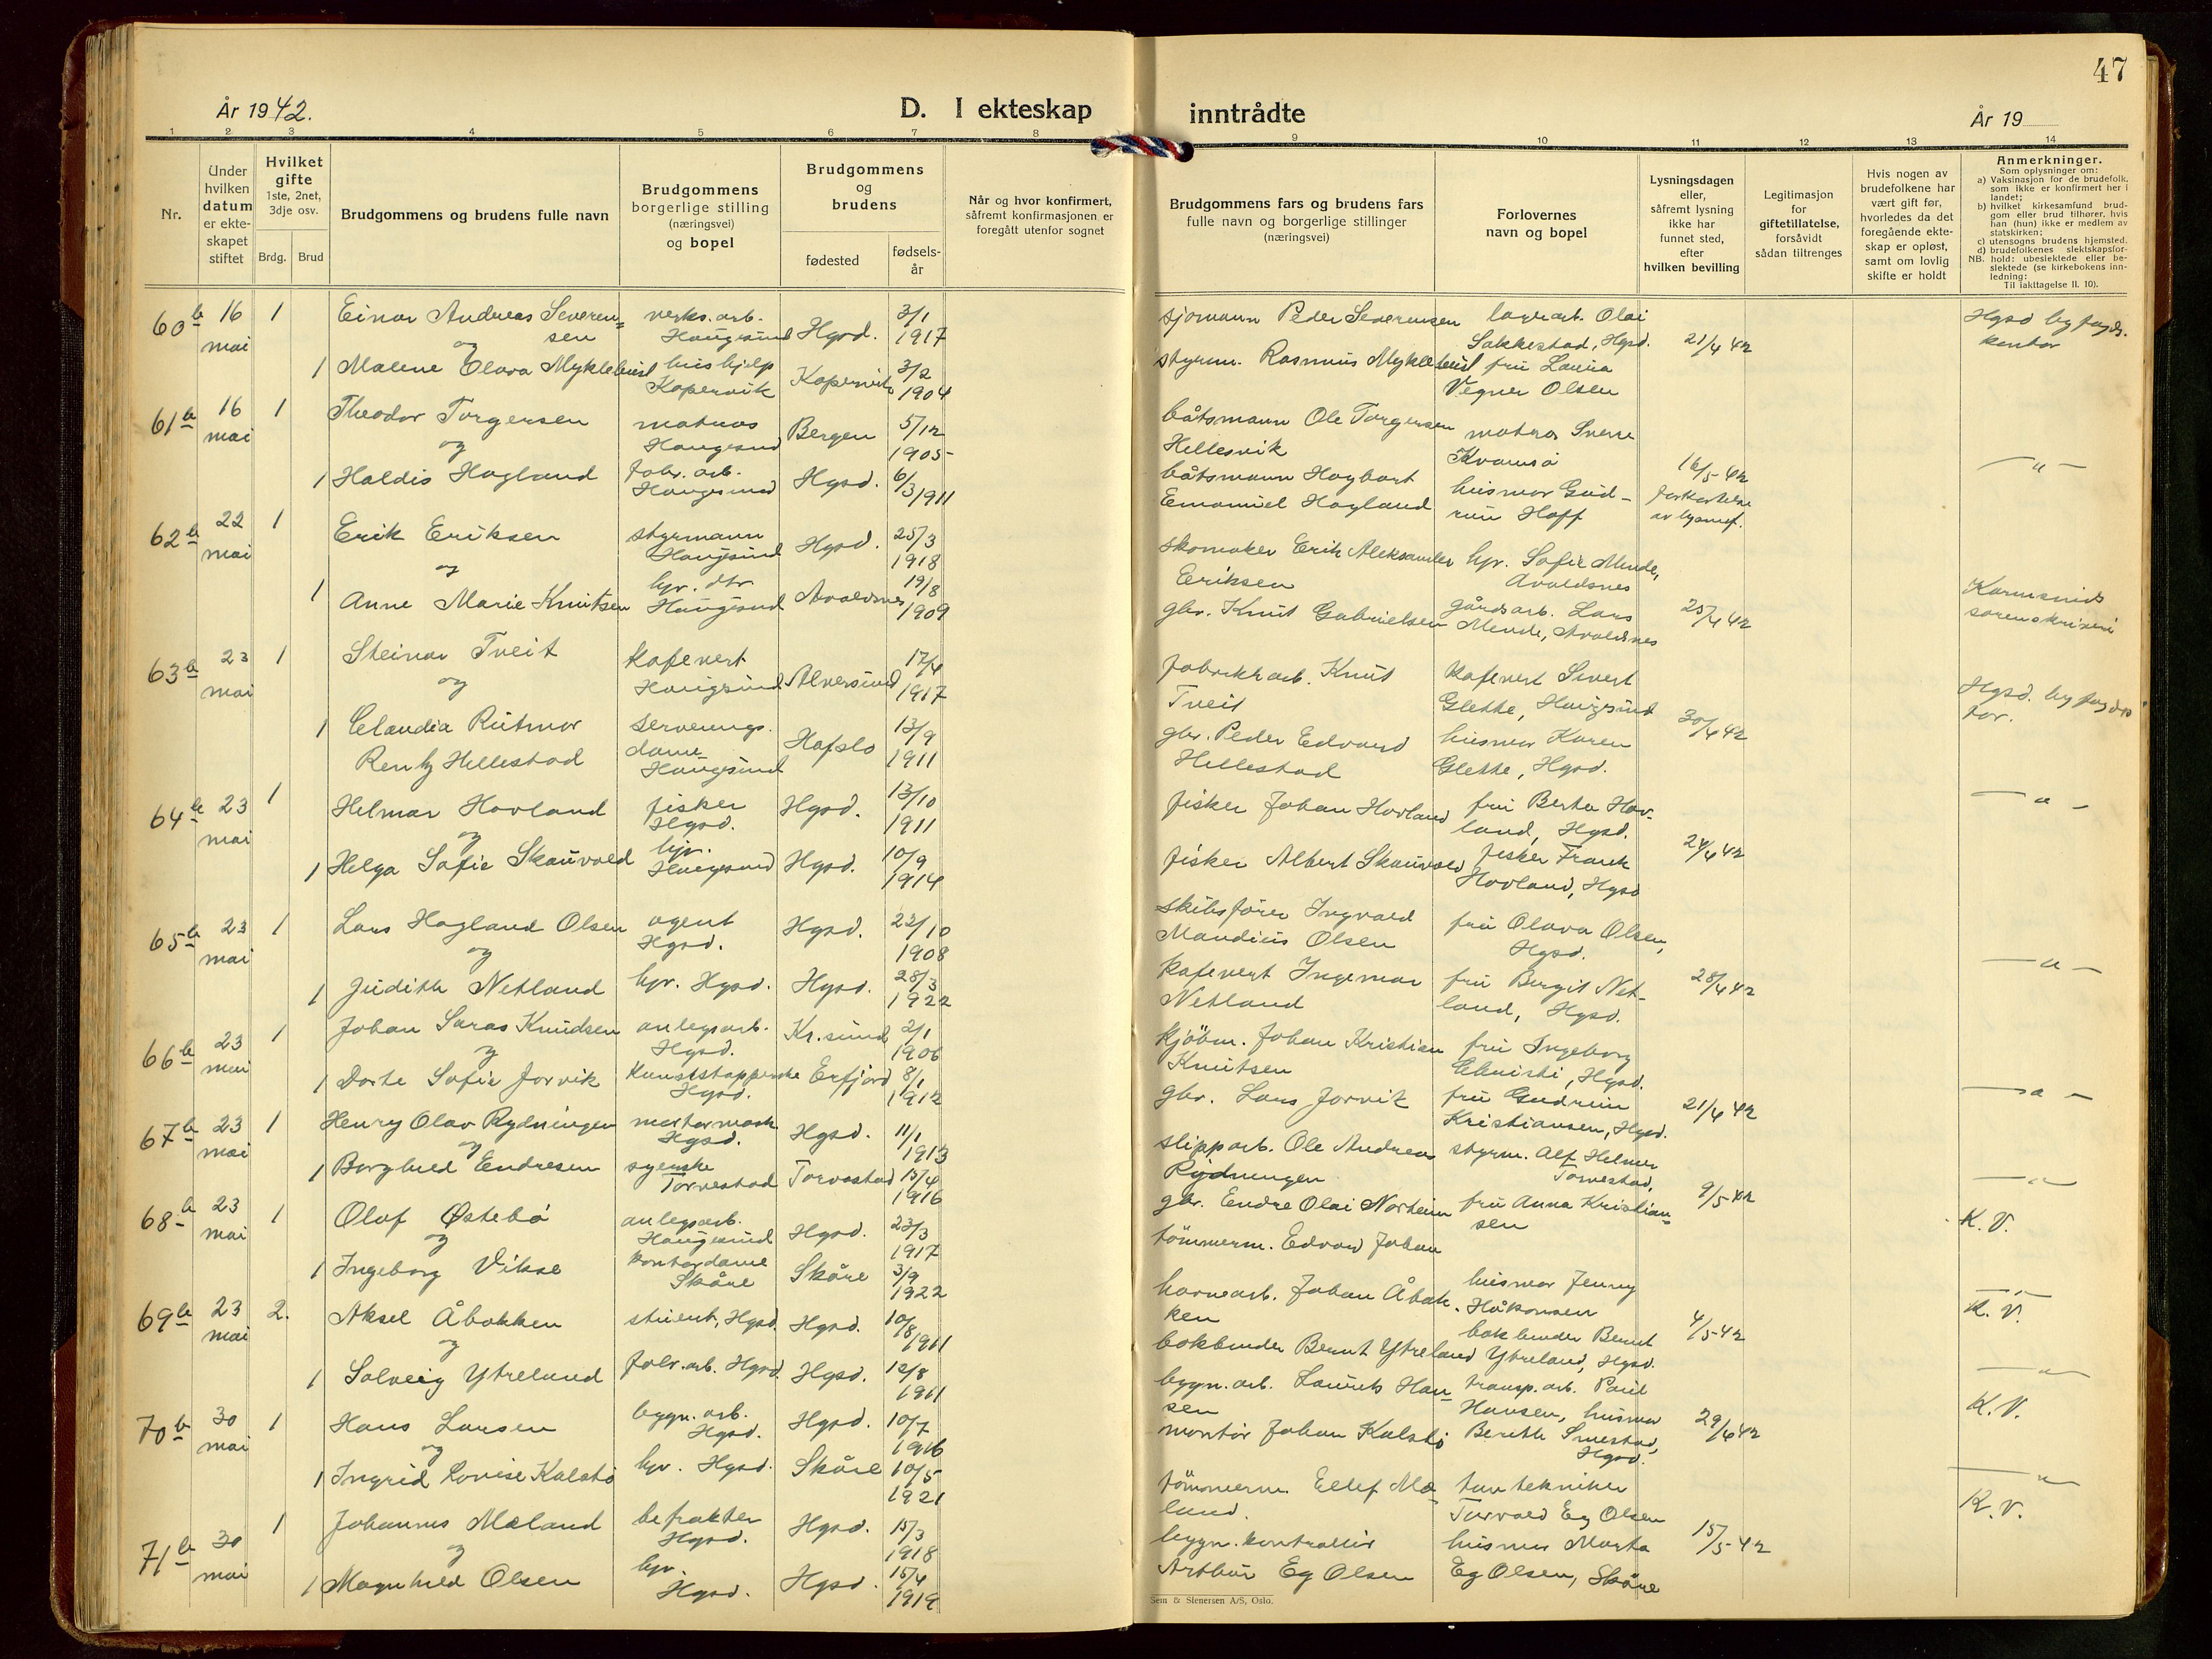 47
År 1942.
D. I ekteskap
inntrådte
År 19
1 2 3 4 5 6 7 8
9 10 11 12 13 14
Nr.
Under hvilken datum er ekte-skapet stiftet
Hvilket gifte
1ste, 2net, 3dje osv.
Brdg. Brud
Brudgommens og brudens fulle navn
Brudgommens borgerlige stilling (næringsvei) og bopel
Brudgommens og brudens
fødested
fødsels-år
Når og hvor konfirmert, såfremt konfirmasjonen er foregått utenfor sognet
Brudgommens fars og brudens fars fulle navn og borgerlige stillinger (næringsvei)
Forlovernes navn og bopel
Lysningsdagen eller, såfremt lysning ikke har funnet sted, efter hvilken bevilling
Legitimasjon for giftetillatelse, forsåvidt sådan tiltrenges
Hvis nogen av brudefolkene har vært gift før, hvorledes da det foregående ekte-skap er opløst, samt om lovlig skifte er holdt
Anmerkninger.
Som oplysninger om:
a) Vaksinasjon for de brudefolk, som ikke er konfirmert her i landet;
b) hvilket kirkesamfund brud-gom eller brud tilhører, hvis han (hun) ikke er medlem av statskirken;
c) utensogns brudens hjemsted.
d) brudefolkenes slektskapsfor-
NB. hold: ubeslektede eller be-slektede (se kirkebokens inn-ledning:
Til iakttagelse II. 10).
60 b 16 mai 1 Einar Andreas Severen=sen verks.arb. Haugesund Hgsd. 3/1 1917
og
1 Malene Olava Myklebust hushjelp Kopervik Kopervik 3/2 1904
61 b 16 mai 1 Theodor Torgersen matros Haugesund Bergen 5/12 1905
og
1 Haldis Hagland fabr. arb. Haugesund Hgsd. 6/3 1911
62 b 22 mai 1 Erik Eriksen styrmann Haugesund Hgsd. 25/3 1918
og
1 Anne Marie Knutsen hpr. dtr. Haugesund Avaldsnes 19/8 1909
63 b 23 mai 1 Steinar Tveit kafevert Haugesund Alversund 17/4 1917
og
1 Claudia Rutmor Rentz Hellestad serverings.dame Haugesund Hafslo 13/9 1911
64 b 23 mai 1 Helmar Hovland fisker Hgsd. Hgsd. 13/10 1911
og
1 Helga Sofie Skauvold hpr. Haugesund Hgsd. 10/9 1914
65 b 23 mai 1 Lars Hagland Olsen agent Hgsd. Hgsd. 23/10 1908
og
1 Judith Netland hpr. Hgsd. Hgsd. 28/3 1922
66 b 23 mai 1 Johan Knudsen anlegsarb. Hgsd. Kr.sund 2/1 1906
og
1 Dorte Sofie Jorvik kunststopperske Hgsd. Erfjord 8/1 1912
67 b 23 mai 1 Henry Olav Rydningen Hgsd. Hgsd. 11/1 1913
og
1 Borghild Endresen syerske Torvestad Torvestad 15/4 1916
68 b 23 mai 1 Olaf Østebø anlegsarb. Haugesund Hgsd. 23/3 1917
og
1 Ingeborg Vikse kontordame Skåre Skåre 3/9 1922
69 b 23 mai 2. Aksel Åbakken stuert, Hgsd. Hgsd. 10/8 1911
og
1 Solveig Ytreland fabr. arb. Hgsd. Hgsd. 12/8 1911
70 b 30 mai 1 Hans Larsen bygn. arb. Hgsd. Hgsd. 10/7 1916
og
1 Ingrid Lovise Kalstø hpr. Hgsd. Skåre 10/5 1921
71 b 30 mai 1 Johannes Mæland befrakter Hgsd. Hgsd. 15/3 1918
og
1 Magnhild Olsen hpr. Hgsd. Hgsd. 15/4 1919
sjømann Peder Severensen lagerarb. Olai Sakkestad, Hgsd. 21/4 42 Hgsd byfogds. kontor
styrm. Rasmus Myklebust fru Laura Vegner Olsen
båtsmann Ole Torgersen Hellesvik matros Sverre Kvamsø
båtsmann Hagbart Emanuel Hagland husmor Gud-run Hoff 16/5-42 forkortelse av lysn.f. - " -
skomaker Erik Aleksander Eriksen hpr. Sofie Mende, Avaldsnes
gbr. Knut Gabrielsen gårdsarb. Lars Mende, Avaldsnes 25/4 42 Karmsunds sorenskriveri
fabrikkarb. Knut Tveit kafevert Sivert Glette, Haugesund
gbr. Peder Edvard Hellestad husmor Karen Glette, Hgsd. 30/4 42 Hgsd. byfogdktor.
fisker Johan Hovland fru Berta Hov-land, Hgsd.
fisker Albert Skauvold fisker Frank Hovland, Hgsd 24/4 42 - " -
skibsfører Ingvald Mandius Olsen fru Olava Olsen, Hgsd.
kafevert Ingemar Netland fru Bergit Net-land, Hgsd. 28/4 42 - " -
kjöbm. Johan Kristian Knutsen fru Ingeborg Hgsd.
gbr. Lars Jorvik fru Gudrun Kristiansen, Hgsd. 21/4 42 - " -
slipparb. Ole Andreas Rydningen styrm. Alf Helmer Torvestad,
gbr. Endre Olai Norheim fru Anna Kristian=sen 9/5-42 - " -
tömmerm. Edvard Johan K. V.
havnearb. Johan Åbak-ken husmor Jenny Håkonsen - " -
bokbinder Bernt Ytreland bokbinder Bernt Ytreland, Hgsd. 4/5-42 K. V.
bygn. arb. Laurits Han-sen transp. arb. Paul Hansen, husmor - " -
montør Johan Kalstø Berith Smestad, Hgsd. 29/4 42 K. V.
tömmerm. Ellef Mæ-land. tantekniker Torvald Eg Olsen - " -
bygn. kontrollør Arthur Eg Olsen husmor Marta Eg Olsen, Skåre 15/5-42 K. V.
Sem & Stenersen A/S, Oslo.